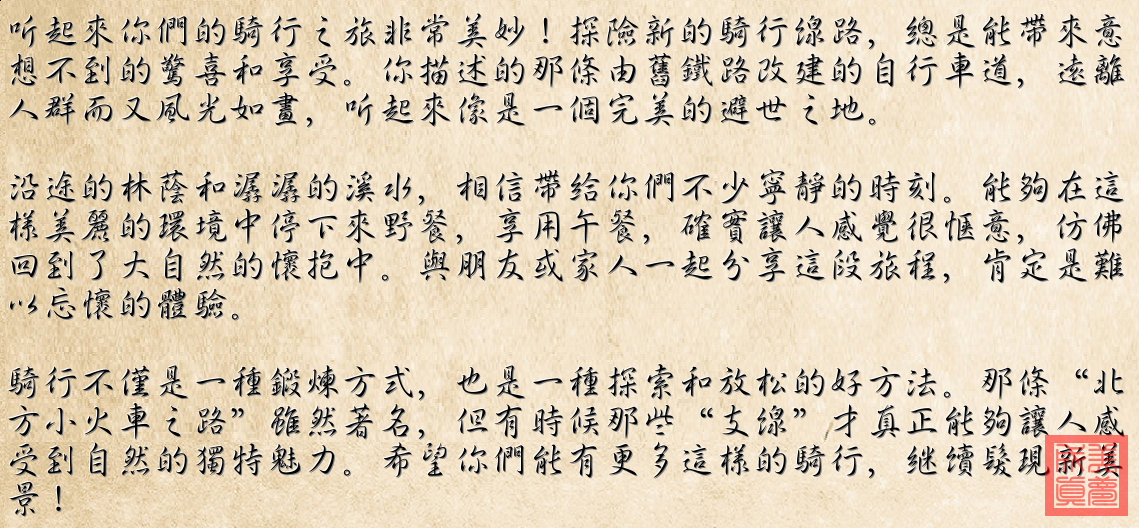 听起來你們的騎行之旅非常美妙！探險新的騎行線路，總是能帶來意
想不到的驚喜和享受。你描述的那條由舊鐵路改建的自行車道，遠離
人群而又風光如畫，听起來像是一個完美的避世之地。
沿途的林蔭和潺潺的溪水，相信帶給你們不少寧靜的時刻。能夠在這
樣美麗的環境中停下來野餐，享用午餐，確實讓人感覺很愜意，仿佛
回到了大自然的懷抱中。與朋友或家人一起分享這段旅程，肯定是難
以忘懷的體驗。
騎行不僅是一種鍛煉方式，也是一種探索和放松的好方法。那條“北
方小火車之路”雖然著名，但有時候那些“支線”才真正能夠讓人感
受到自然的獨特魅力。希望你們能有更多這樣的騎行，继續髮現新美
景！